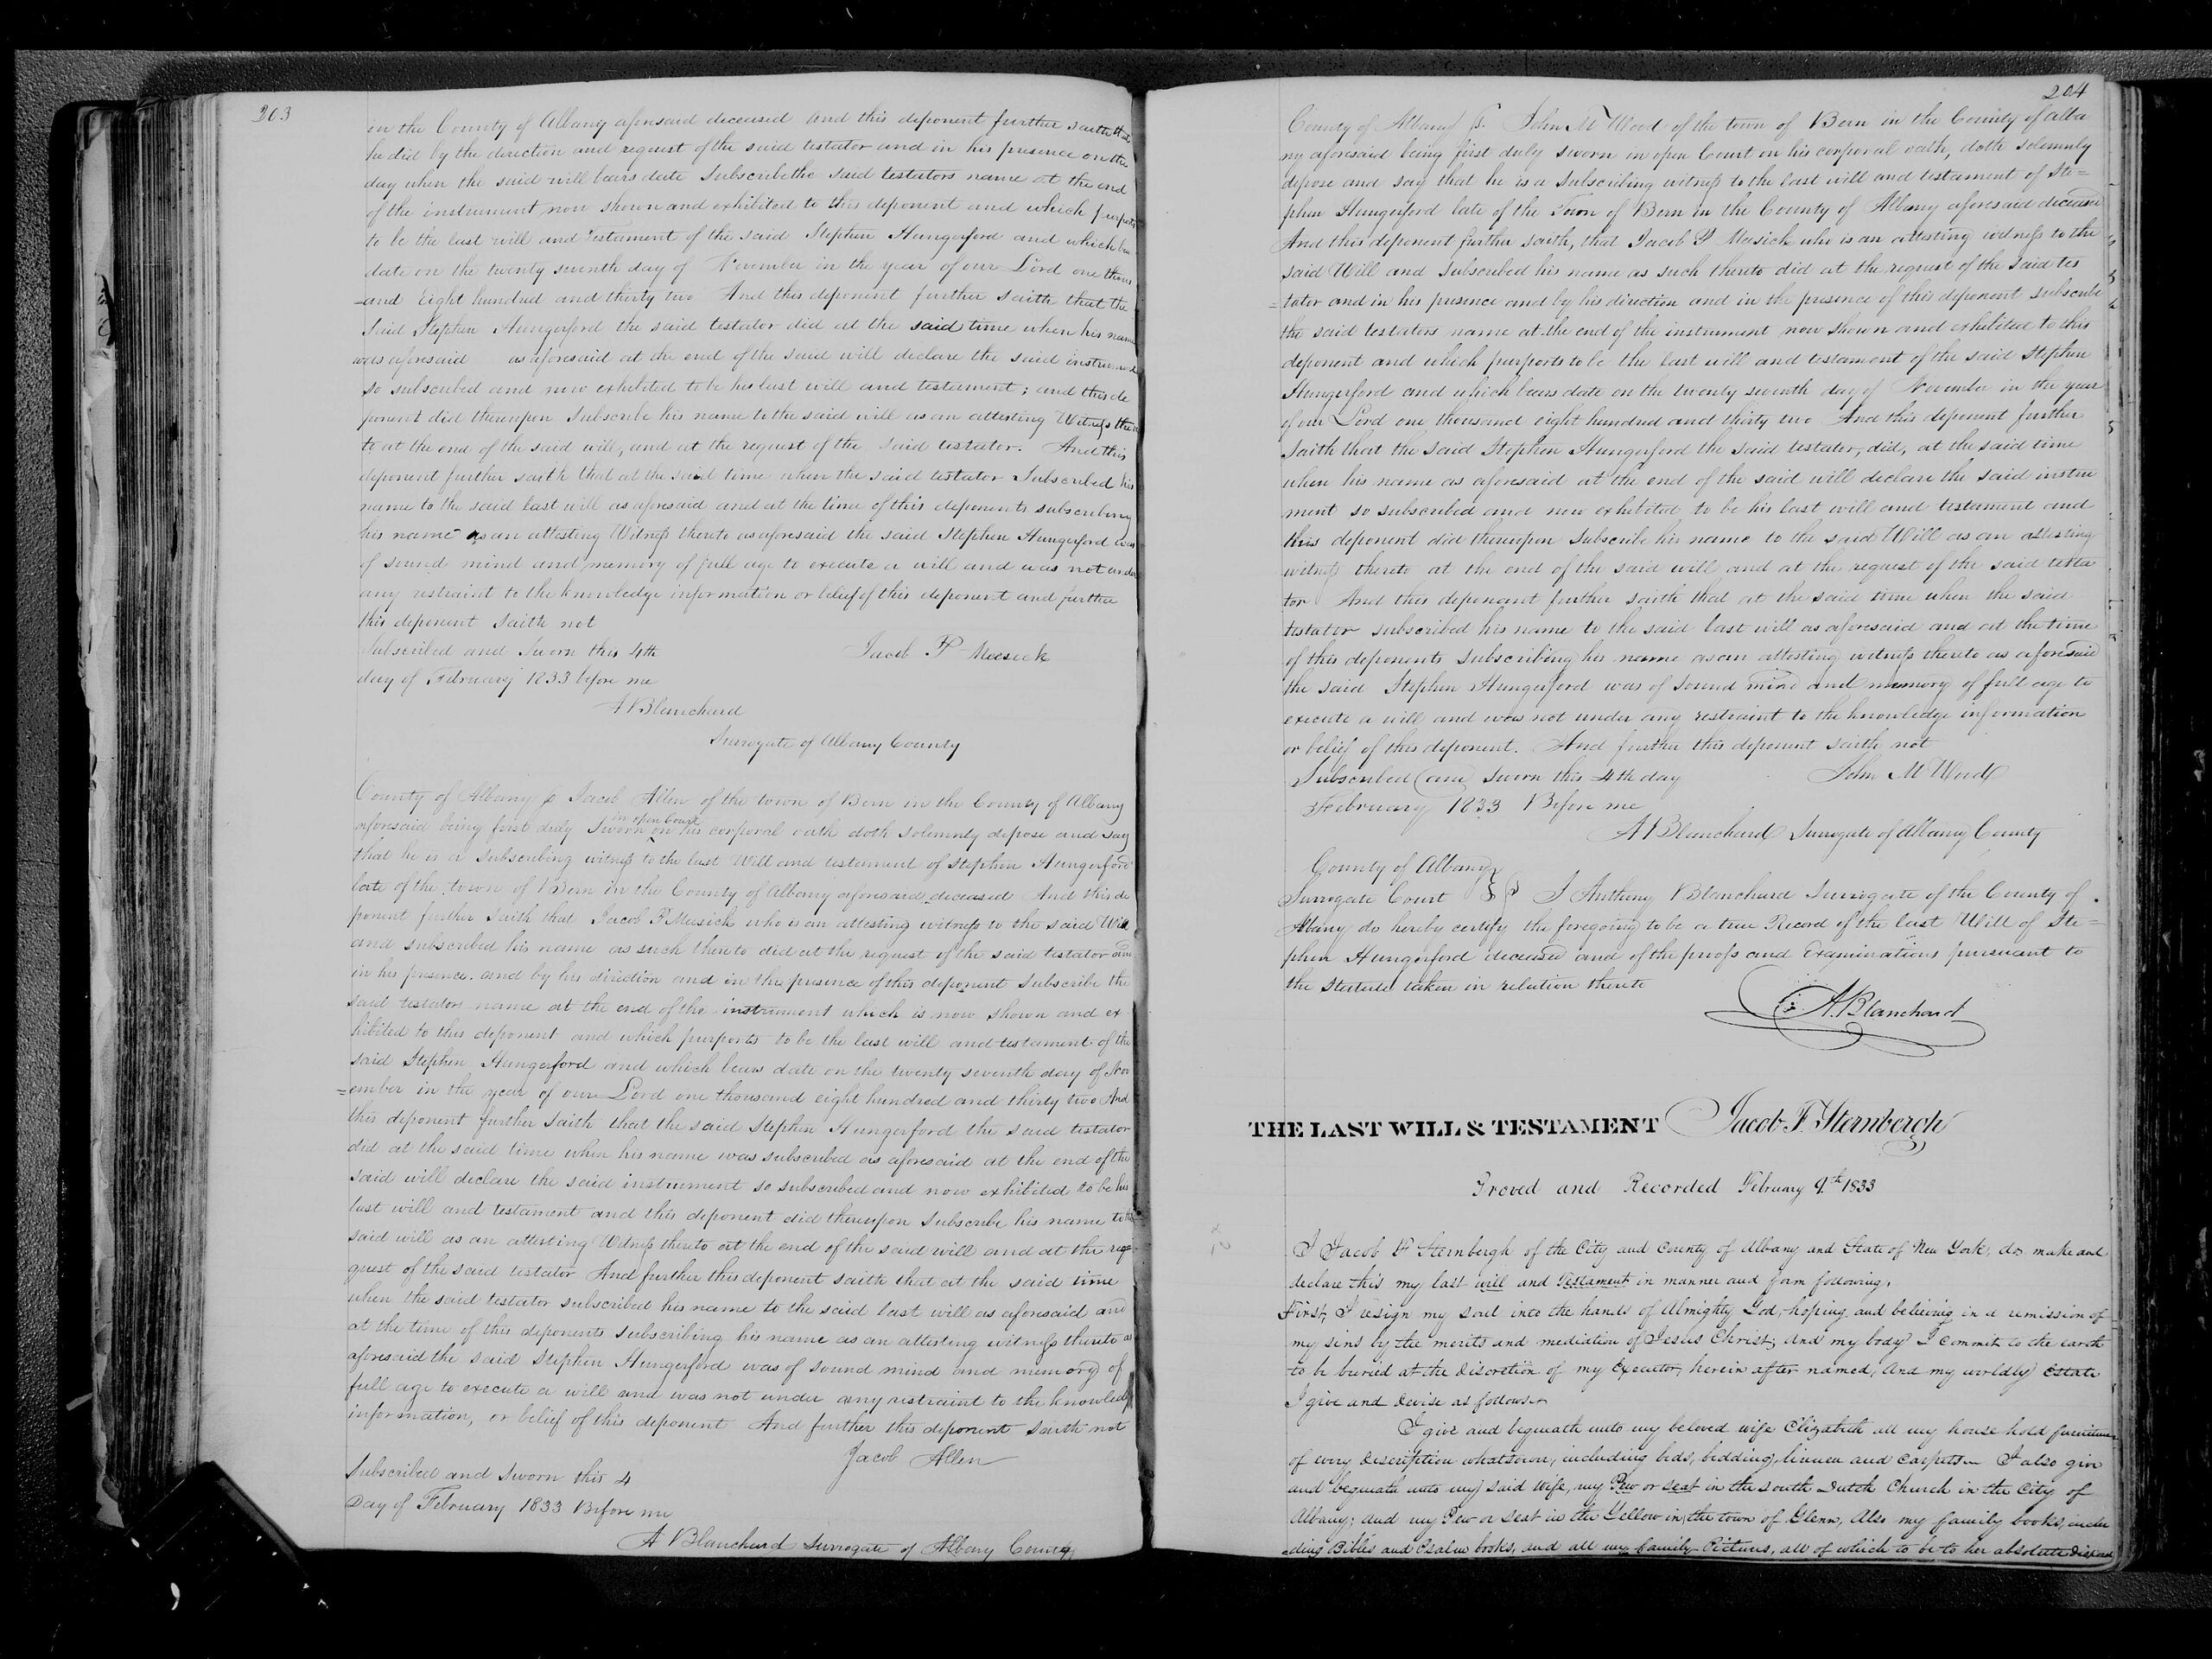 203
in the County of Albany aforesaid deceased and this deponent further saith that
he did by the direction and request of the said testator and in his presence on the
day when the said will bears date Subscribe the said testators name at the end
of the instrument now shown and exhibited to this deponent and which purports
to be the last will and Testament of the said Stephen Hungerford and which
date on the twenty seventh day of November in the year of our Lord one thous
-and Eight hundred and thirty two And this deponent further saith that the
Said Stephen Hungerford the said testator did at the said time when his name
was aforesaid as aforesaid at the end of the said will declare the said instrument
so subscribed and now exhibited to be his last will and testament; and this de
ponent did thereupon Subscribe his name to the said will as an attesting Witness there
to at the end of the said will, and at the request of the said testator. And this
deponent further saith that at the said time when the said testator Subscribed his
name to the said last will as aforesaid and at the time of this deponents subscribing
his name as an attesting Witness thereto as aforesaid the said Stephen Hungerford was
of sound mind and memory of full age to execute a will and was not under
any restraint to the knowledge information or belief of this deponent and further
this deponent saith not
Subscribed and Sworn this 4th Jacob P Meesick
day of February 1833 before me
A Blanchard
Surrogate of Albany County
County of Albany ss Jacob Allen of the town of Bern in the County of Albany
aforesaid being first duly Sworn in open Court on his corporal oath doth solemnly depose and say
that he is a Subscribing witness to the last Will and testament of Stephen Hungerford
late of the town of Bern in the County of Albany aforesaid deceased And this de
ponent further saith that Jacob P Meesick who is an attesting witness to the said Will
and subscribed his name as such thereto did at the request of the said testator and
in his presence and by his direction and in the presence of this deponent Subscribe the
said testators name at the end of the instrument which is now shown and ex
hibited to this deponent and which purports to be the last will and testament of the
said Stephen Hungerford and which bears date on the twenty seventh day of Nov
=ember in the year of our Lord one thousand eight hundred and thirty two And
this deponent further saith that the said Stephen Hungerford the said testator
did at the said time when his name was subscribed as aforesaid at the end of the
said will declare the said instrument so subscribed and now exhibited to be his
last will and testament and this deponent did thereupon subscribe his name to the
said will as an attesting Witness thereto at the end of the said will and at the re
quest of the said testator And further this deponent saith that at the said time
when the said testator subscribed his name to the said last will as aforesaid and
at the time of this deponents subscribing his name as an attesting witness thereto as
aforesaid the said Stephen Hungerford was of sound mind and memory of
full age to execute a will and was not under any restraint to the knowledge
information, or belief of this deponent And further this deponent saith not
Jacob Allen
Subscribed and Sworn this 4
Day of February 1833 Before me
A Blanchard Surrogate of Albany County
204
County of Albany ss. John M Wood of the town of Bern in the County of Alba
ny aforesaid being first duly sworn in open Court on his corporal oath, doth solemnly
depose and say that he is a Subscribing witness to the last will and testament of Ste=
phen Hungerford late of the Town of Bern in the County of Albany aforesaid deceased
And this deponent further saith, that Jacob P Meesick who is an attesting witness to the
said Will and subscribed his name as such thereto did at the request of the said tes
=tator and in his presence and by his direction and in the presence of this deponent subscribe
the said testators name at the end of the instrument now shown and exhibited to this
deponent and which purports to be the last will and testament of the said Stephen
Hungerford and which bears date on the twenty seventh day of November in the year
of our Lord one thousand eight hundred and thirty two And this deponent further
saith that the said Stephen Hungerford the said testator, did, at the said time
when his name as aforesaid at the end of the said will declare the said instru
ment so subscribed and now exhibited to be his last will and testament and
this deponent did thereupon subscribe his name to the said Will as an attesting
witness thereto at the end of the said will and at the request of the said testa
tor And this deponent further saith that at the said time when the said
testator subscribed his name to the said last will as aforesaid and at the time
of this deponents subscribing his name as an attesting witness thereto as aforesaid
the said Stephen Hungerford was of sound mind and memory of full age to
execute a will and was not under any restraint to the knowledge information
or belief of this deponent. And further this deponent saith not
Subscribed and Sworn this 4th day John M Wood
February 1833 Before me
A Blanchard Surrogate of Albany County
County of Albany
Surrogate Court } ss I Anthony Blanchard Surrogate of the County of
Albany do hereby certify the foregoing to be a true Record of the last Will of Ste=
phen Hungerford deceased and of the proofs and Examinations pursuant to
the Statute taken in relation thereto
A. Blanchard
THE LAST WILL & TESTAMENT Jacob F. Sternbergh
Proved and Recorded February 9th 1833
I Jacob F Sternbergh of the City and County of Albany and State of New York, do make and
declare this my last will and Testament in manner and form following,
First, I resign my soul into the hands of Almighty God, hoping and believing in a remission of
my sins by the merits and mediation of Jesus Christ; and my body I commit to the earth
to be buried at the discretion of my Executor, herein after named, And my worldly Estate
I give and devise as follows.
I give and bequeath unto my beloved wife Elizabeth all my house hold furniture
of every description whatsoever, including beds, bedding, linnen and Carpets. I also give
and bequeath unto my said Wife, my Pew or seat in the South Dutch Church in the City of
Albany; and my Pew or seat in the Yellow in the town of Glenn, Also my family books, inclu
ding Bibles and Psalm books, and all my family Pictures, all of which to be to her absolute